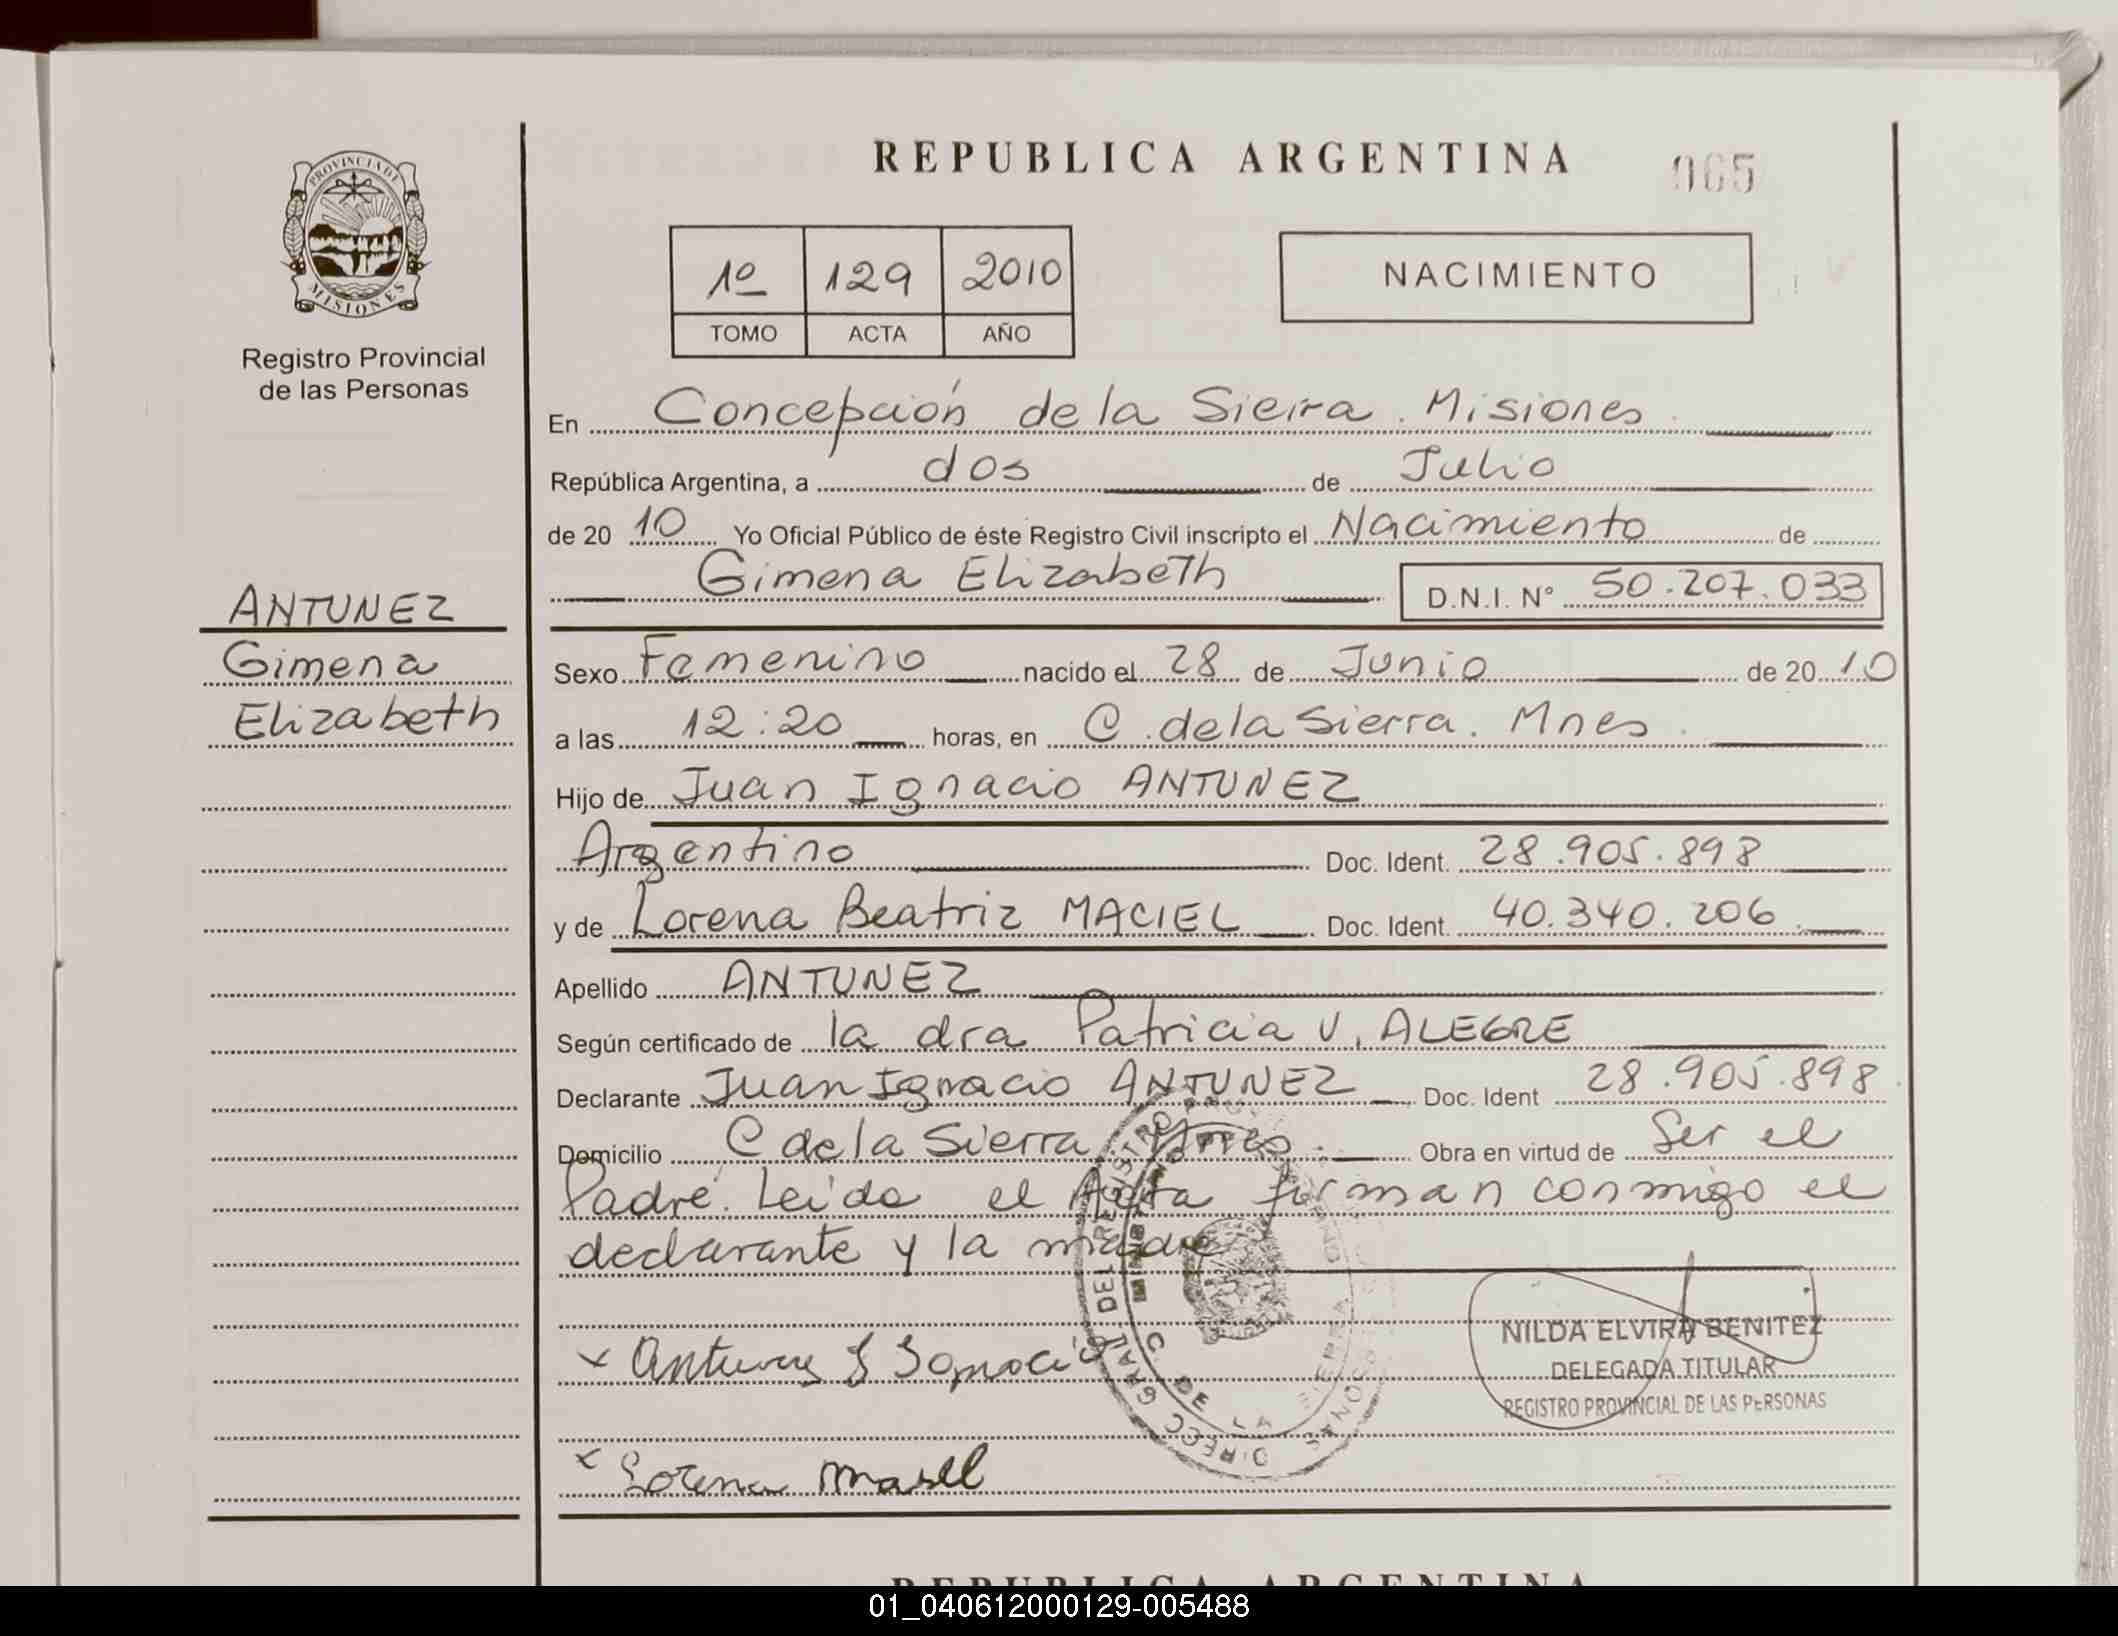 REPUBLICA ARGENTINA
065
PROVINCIA DE MISIONES
Registro Provincial
de las Personas
1º 129 2010
TOMO ACTA AÑO
NACIMIENTO
En Concepción de la Sierra. Misiones.
República Argentina, a dos de Julio
de 20 10 Yo Oficial Público de éste Registro Civil inscripto el Nacimiento de
Gimena Elizabeth D.N.I. N° 50.207.033
ANTUNEZ
Gimena
Elizabeth
Sexo Femenino nacido el 28 de Junio de 20 10
a las 12:20 horas, en C. de la Sierra. Mnes.
Hijo de Juan Ignacio ANTUNEZ
Argentino Doc. Ident. 28.905.898
y de Lorena Beatriz MACIEL Doc. Ident. 40.340.206
Apellido ANTUNEZ
Según certificado de la dra Patricia V. ALEGRE
Declarante Juan Ignacio ANTUNEZ Doc. Ident 28.905.898.
Domicilio C de la Sierra Mnes. Obra en virtud de Ser el
Padre. Leida el Acta firman conmigo el
declarante y la madre
x Antunez J Ignacio
NILDA ELVIRA BENITEZ
DELEGADA TITULAR
REGISTRO PROVINCIAL DE LAS PERSONAS
DIRECC GRAL DEL REGISTRO
C. DE LA SIERRA
x Lorena
REPUBLICA ARGENTINA
01_040612000129-005488